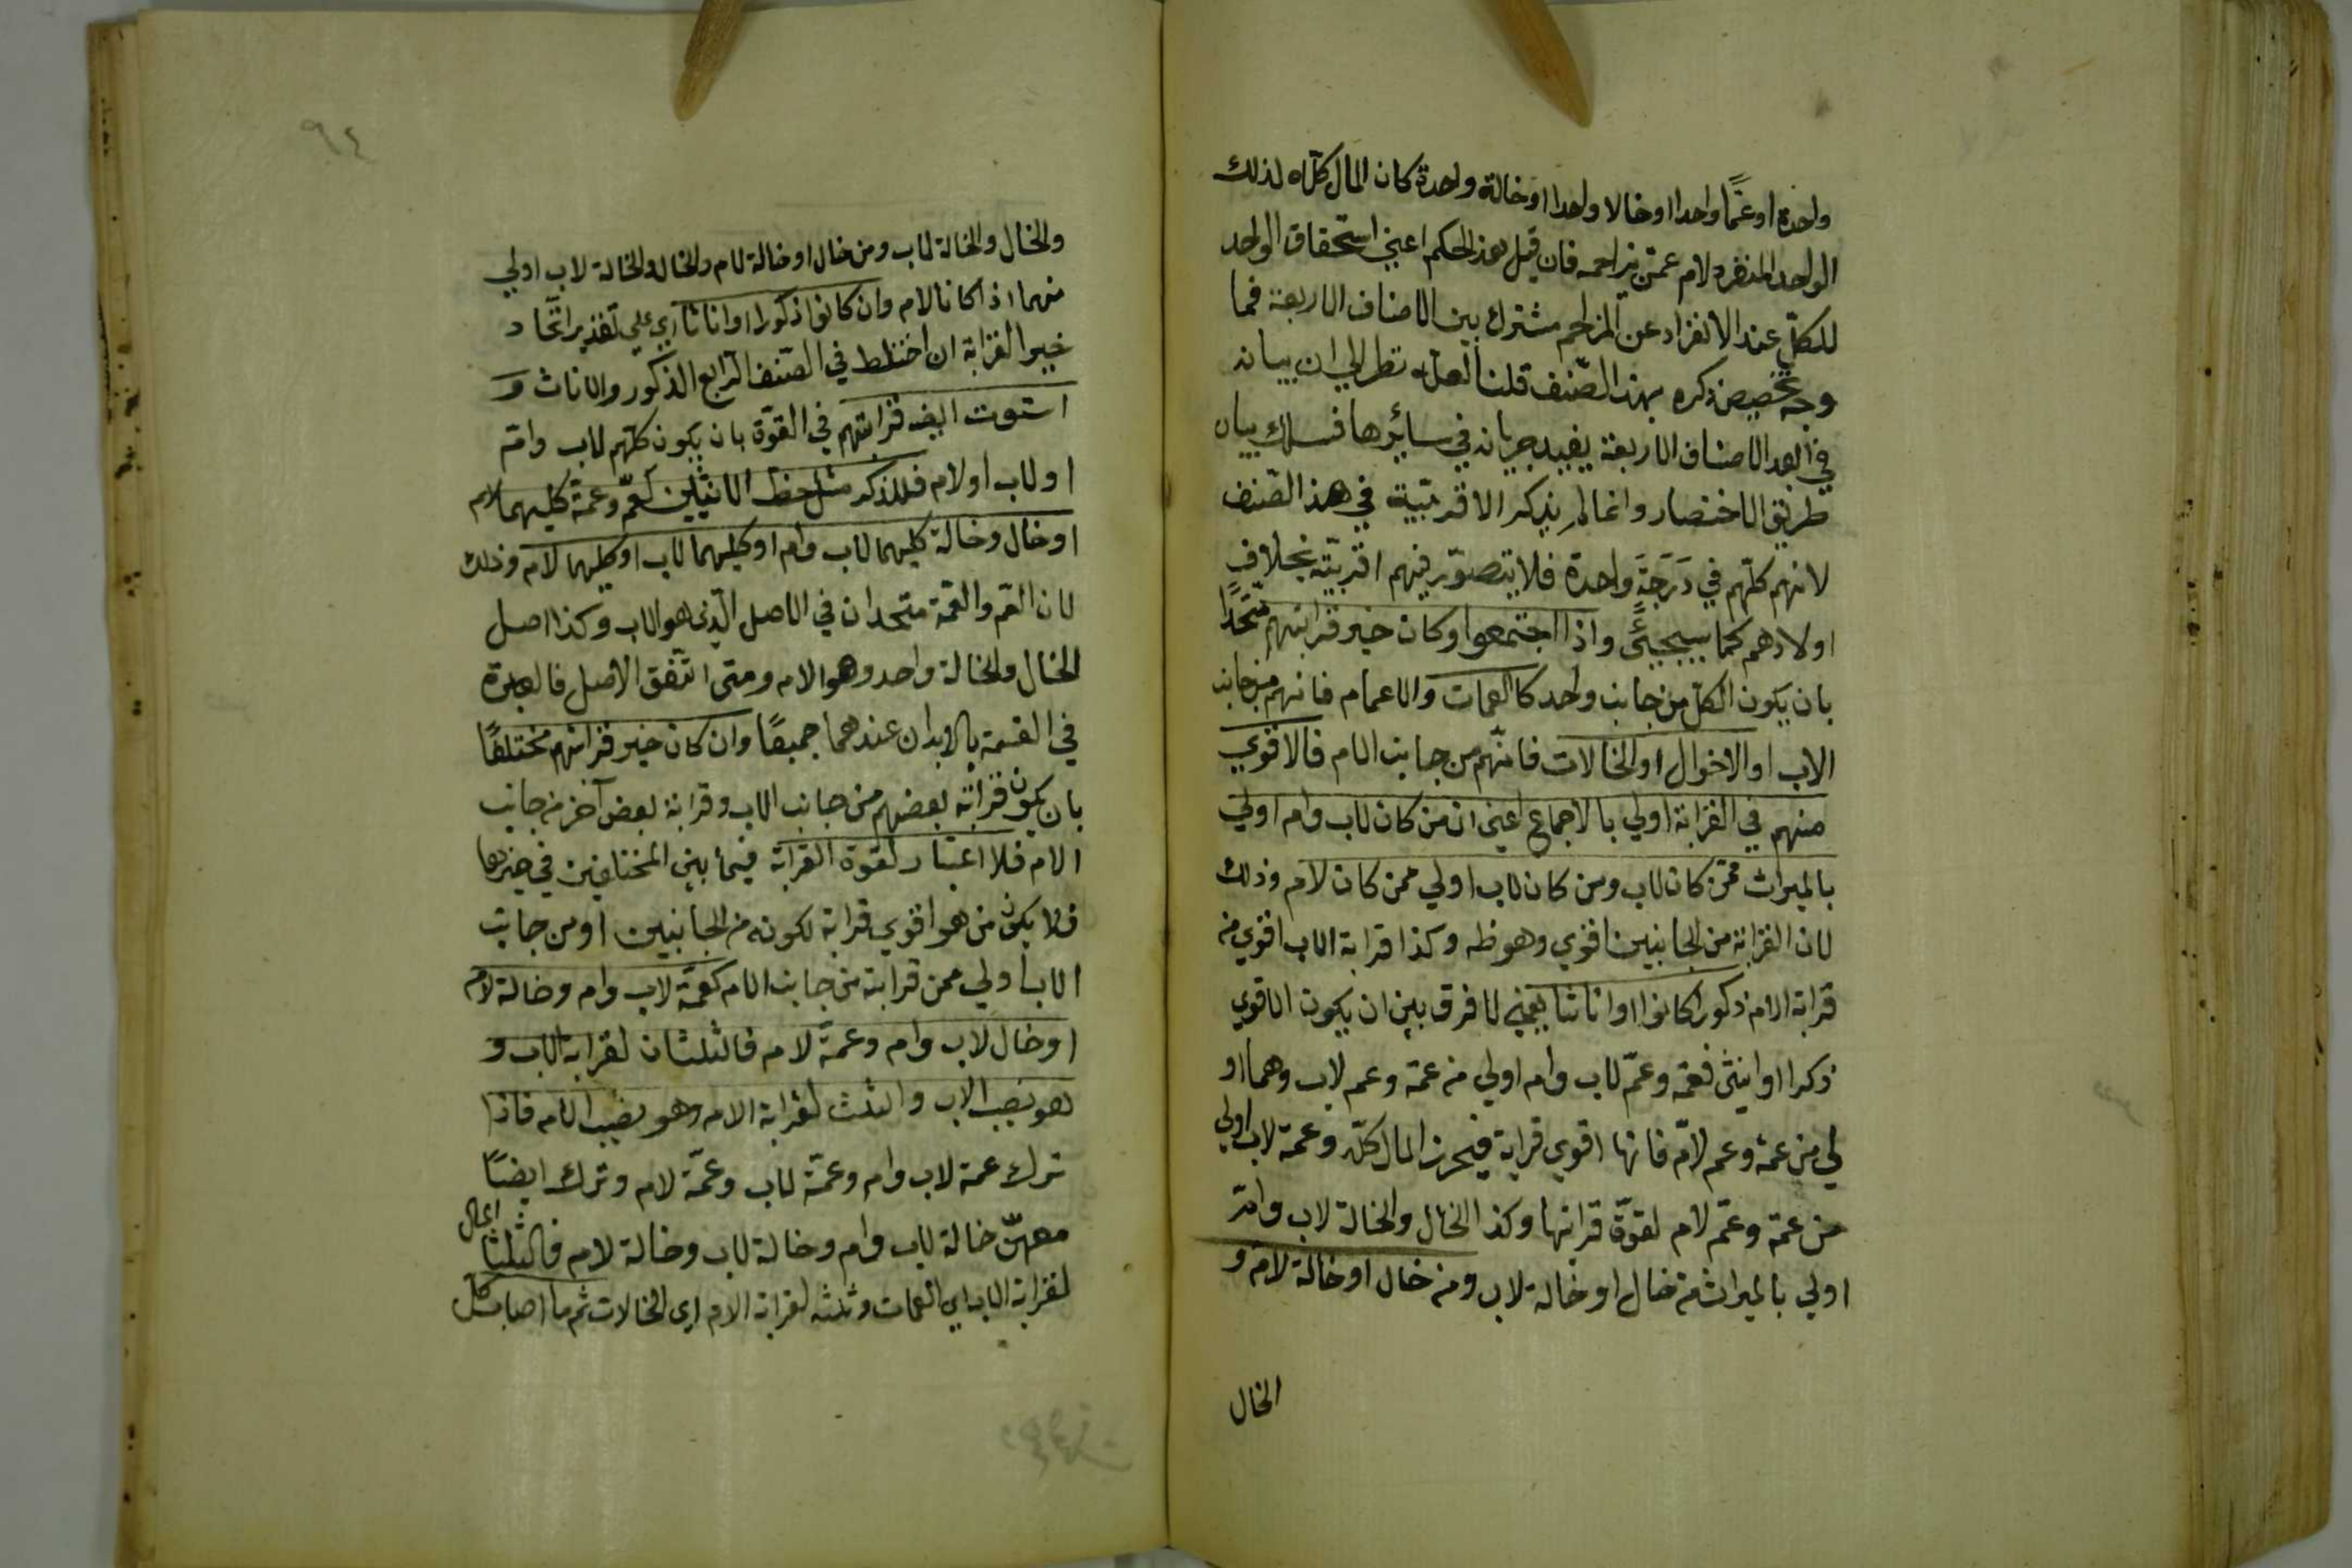 واحدة او عمّا واحدا او خالا واحدا او خالة واحدة كان المال كلّه لذلك
الواحد المنفرد لام عمّن يزاحمه فان قيل هذ الحكم اعني استحقاق الواحد
للكلّ عند الانفراد عن المزاحم مشترك بين الاصناف الاربعة فما
وجه تخصيص ذكره بهذا الصّنف قلنا لعلّه نظر الي ان بيانه
في ابعد الاصناف الاربعة يفيد جريانه في سائرها فسلك بيان
طريق الاختصار وانما لم يذكر الاقربيّة في هذ الصّنف
لانهم كلّهم في دَرَجَة واحدة فلا يتصوّر فيهم اقربيّة بخلاف
اولادهم كما سيجيئُ واذا اجتمعوا وكان حيز قرابتهم متّحدًا
بان يكون الكلّ من جانب واحد كالعمات والاعمام فانهم من جانب
الاب او الاخوال او الخالات فانّهم من جانب الام فالاقوي
منهم في القرابة اولي بالاجماع اعني ان من كان لاب وام اولي
بالميراث ممّن كان لاب ومن كان لاب اولي ممن كان لام وذلك
لان القرابة من الجانبين اقوي وهو ظه وكذا قرابة الاب اقوي من
قرابة الام ذكورا كانوا او اناثا يعني لا فرق بين ان يكون الاقوي
ذكرا او انثي فعمّة وعمّ لاب وام اولي من عمة وعم لاب وهما او
لي من عمة وعم لامّ فانها اقوي قرابة فيحرز المال كلّه وعمة لاب اولي
من عمة وعمّ لام لقوّة قرابتها وكذا الخال والخالة لاب وامّ
اولي بالميراث من خال او خالة لاب ومن خال او خالة لام و
الخال
٩٤
والخال والخالة لاب ومن خال او خالة لام والخال والخالة لاب اولي
منهما اذا كانا لام وان كانوا ذكورا او اناثا اي علي تقدير اتّحاد
حيز القرابة ان اختلط في الصّنف الرّابع الذكور والاناث و
استوت ايضه قرابتهم في القوّة بان يكون كلّهم لاب وامّ
او لاب او لام فللذكر مثل حظ الانثيين كعمّ وعمّة كليهما لام
او خال وخالة كليهما لاب وام او كليهما لاب او كليهما لام وذلك
لان العم والعمّة متحدان في الاصل الّذي هو الاب وكذا اصل
الخال والخالة واحد وهو الام ومتى اتّفق الاصل فالعبرة
في القسمة بالابدان عندهما جميعًا وان كان حيز قرابتهم مختلفًا
بان يكون قرابة بعضهم من جانب الاب وقرابة بعض آخر من جانب
الام فلا اعتبار لقوّة القرابة فيما بين المختلفين في حيزها
فلا يكون من هو اقوي قرابة لكونه من الجانبين او من جانب
الاب اولي ممن قرابته من جانب الام كعمّة لاب وام وخالة لام
او خال لاب وام وعمّة لام فالثلثان لقرابة الاب و
هو نصيب الاب والثلث لقرابة الام وهو نصيب الام فاذا
ترك عمة لاب وام وعمّة لاب وعمّة لام وترك ايضًا
معهنّ خالة لاب وام وخالة لاب وخالة لام فالثلثا المال
لقرابة الاب اي العمات وثلثه لقرابة الام اي الخالات ثم ما اصاب كلّ